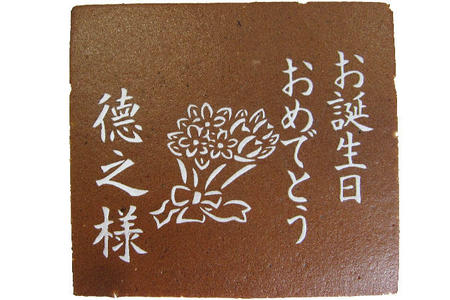 お誕生日
おめでとう
徳之様